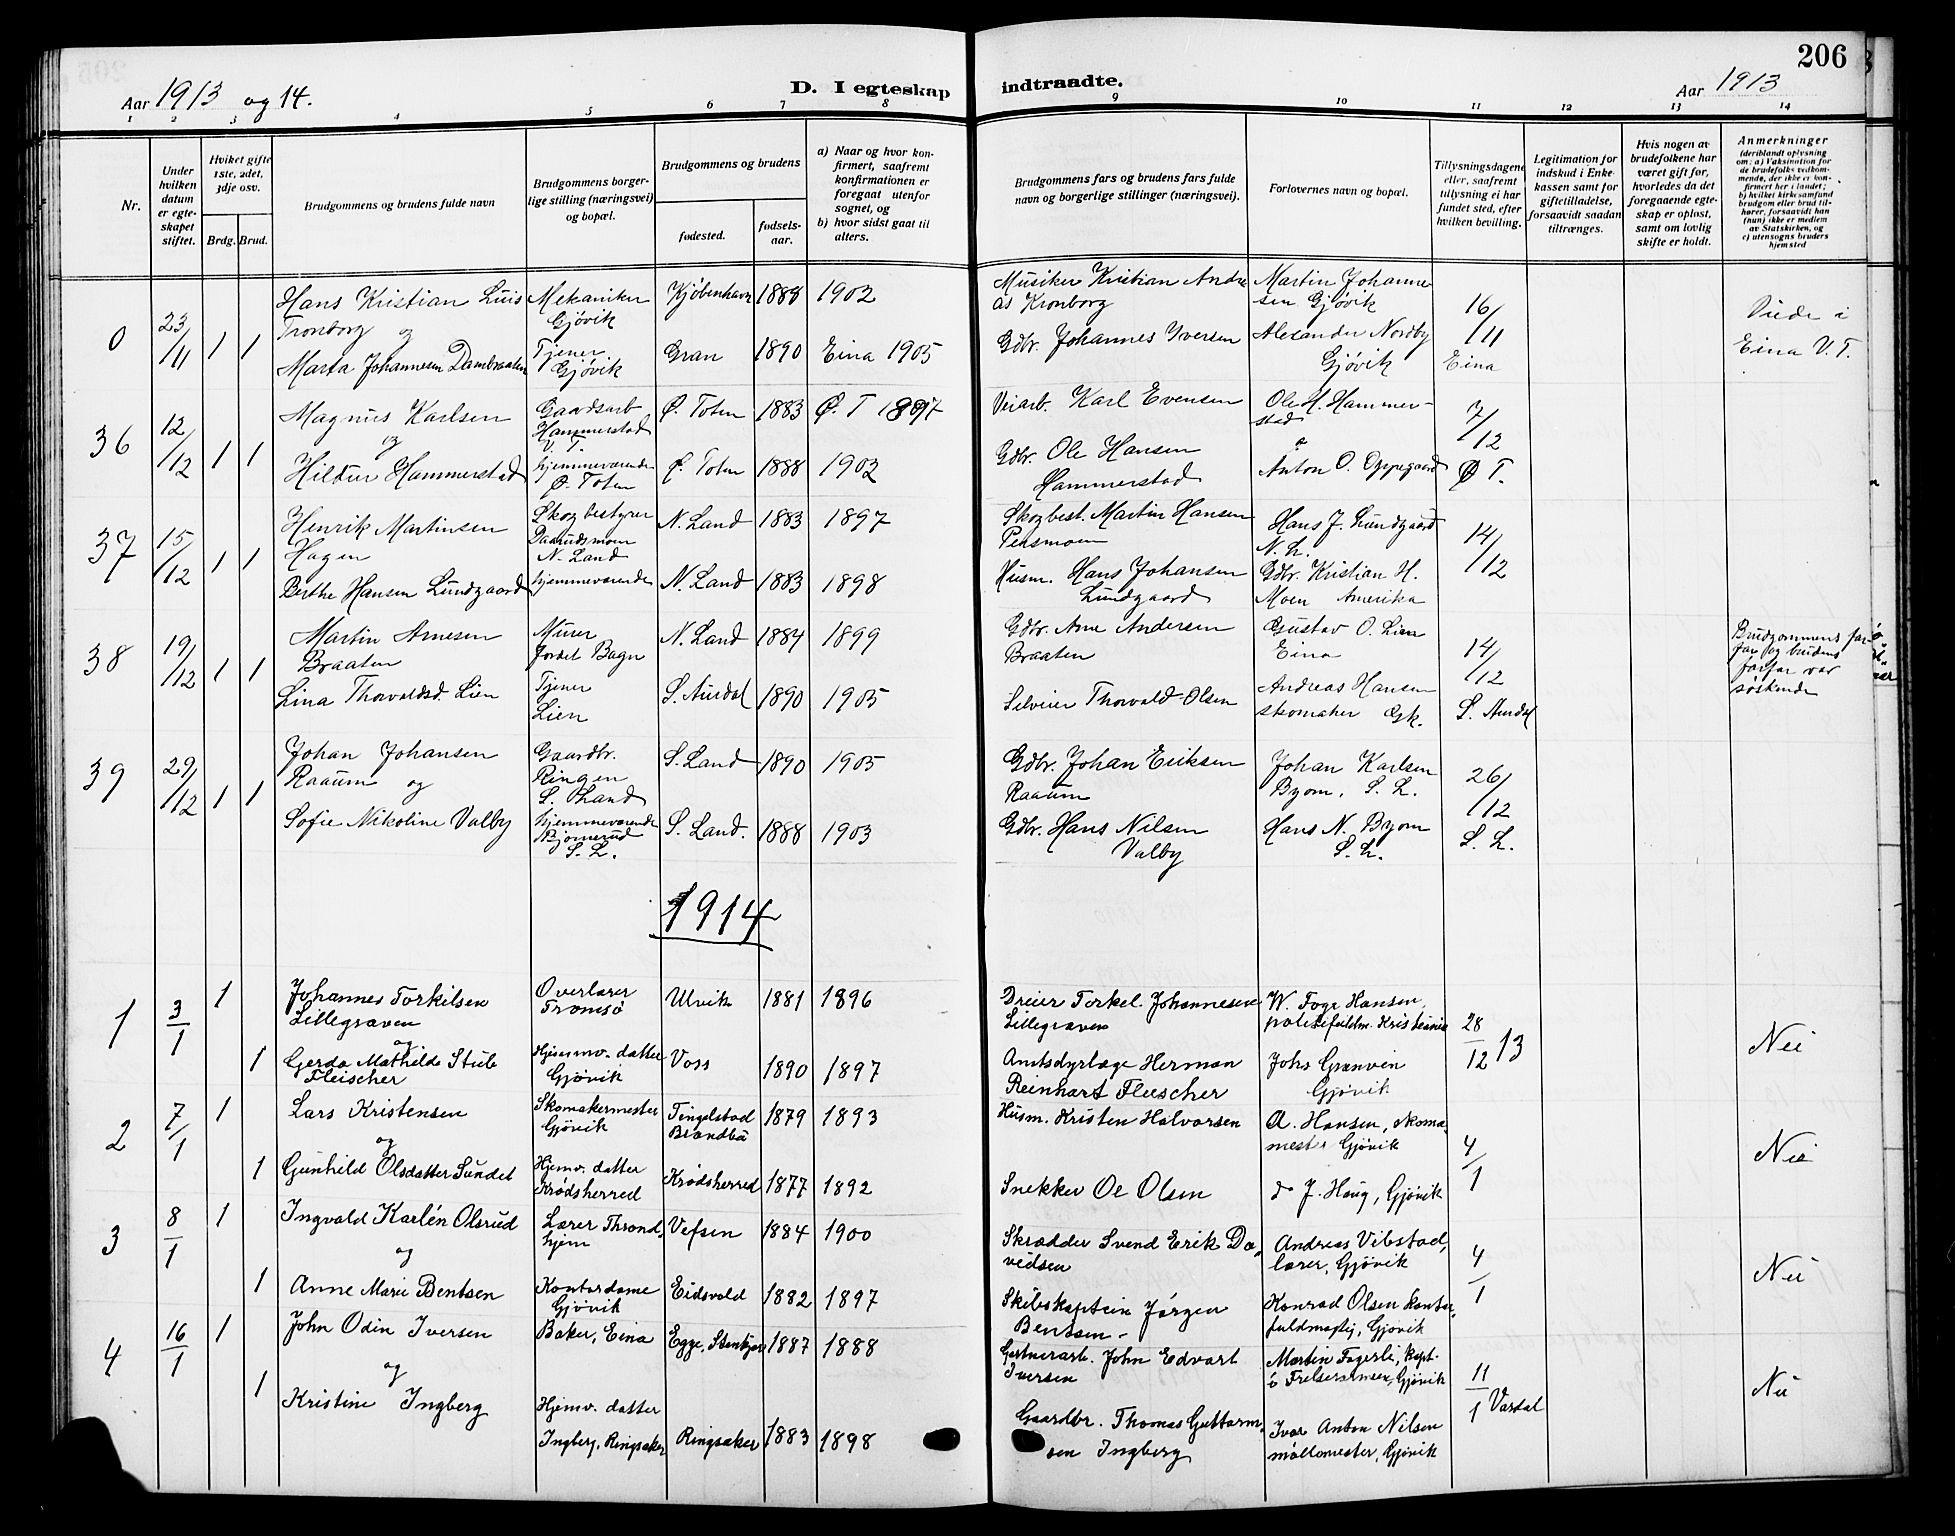 206
Aar 1913 og 14.
D. I egteskap indtraadte.
Aar 1913
1 2 3 4 5 6 7 8 9 10 11 12 13 14
Nr.
Under hvilken datum er egteskapet stiftet.
Hviket gifte 1ste, 2det, 3dje osv.
Brdg. Brud.
Brudgommens og brudens fulde navn
Brudgommens borgerlige stilling (næringsvei) og bopæl.
Brudgommens og brudens
fødested.
fødselsaar.
a) Naar og hvor konfirmert, saafremt konfirmationen er foregaat utenfor sognet, og
b) hvor sidst gaat til alters.
Brudgommens fars og brudens fars fulde navn og borgerlige stillinger (næringsvei).
Forlovernes navn og bopæl.
Tillysningsdagene eller, saafremt tillysning ei har fundet sted, efter hvilken bevilling.
Legitimation for indskud i Enkekassen samt for giftetilladelse, forsaavidt saadan tiltrænges.
Hvis nogen av brudefolkene har været gift før, hvorledes da det foregaaende egteskap er opløst, samt om lovlig skifte er holdt.
Anmerkninger (deriblandt oplysning om: a) Vaksination for de brudefolks vedkommende, der ikke er konfirmert her i landet; b) hvilket kirkesamfund brudgom eller brud tilhører, forsaavidt han (hun) ikke er medlem av Statskirken, og c) utensogns bruders hjemsted
0 23/11 1 1
Hans Kristian Luis Tronborg og
Mekaniker Gjøvik
Kjøbenhavn 1888 1902
Musiker Kristian Andreas Kronborg
Martin Johannesen Gjøvik
16/11 Eina
Viede i Eina V. T.
Marta Johannesen Dambraaten
Tjener Gjøvik
Gran 1890 Eina 1905
Gdbr. Johannes Iversen
Alexander Nordby Gjøvik
36 12/12 1 1
Magnus Karlsen og
Gaardsarb Hammerstad V. T.
Ø. Toten 1883 Ø. T 1897
Veiarb. Karl Evensen
Ole H. Hammerstad o
7/12 Ø T.
Hildur Hammerstad
hjemmeværende Ø. Toten
Ø. Toten 1888 1902
Gdbr. Ole Hansen Hammerstad
Anton O. Oppegaard
37 15/12 1 1
Henrik Martinsen Hagen
Skogbestyrer N. Land
N. Land 1883 1897
Skogbest. Martin Hansen
Hans J. Lundgaard N. L.
14/12
Berthe Hansen Lundgaard
hjemmeværende
N. Land 1883 1898
Husm. Hans Johansen Lundgaard
Gdbr. Kristian H. Moen Amerika
38 19/12 1 1
Martin Arnesen Braaten
Murer Bagn
N. Land 1884 1899
Gdbr. Arne Andersen Braaten
Gustav O. Lien Eina
14/12 S. Aurdal
Brudgommens farfar og brudens farfar var søskende
Lina Thorvaldsd. Lien
Tjener Lien
S. Aurdal 1890 1905
Selveier Thorvald Olsen
Andreas Hansen skomaker Gk.
39 29/12 1 1
Johan Johansen Raaum og
Gaardbr. Ringen S. Land
S. Land 1890 1905
Gdbr. Johan Eriksen Raaum
Johan Karlsen Byom, S. L.
26/12 S. L.
Sofie Nikoline Valby
hjemmeværende Bjømerud S. L.
S. Land. 1888 1903
Gdbr. Hans Nilsen Valby
Hans N. Byom S. L.
1914
1 3/1 1
Johannes Torkilsen Lillegraven og
Overlærer Tromsø
Ulvik 1881 1896
Dreier Torkel Johannesen Lillegraven
W. Foge Hansen, politifuldm. Kristiania
28/12 13
Nei
1
Gerda Mathilde Stub Fleischer
Hjemmv. datter Gjøvik
Voss 1890 1897
Amtsdyrlæge Herman Reinhart Fleischer
Johs Granvin Gjøvik
2 7/1 1
Lars Kristensen og
Skomakermester Gjøvik
Tingelstad Brandbu 1879 1893
Husm. Kristen Halvorsen
A. Hansen, skomamester Gjøvik
4/1
Nei
1
Gunhild Olsdatter Sundet
Hjemv. datter Krødsherred
Krødsherred 1877 1892
Snekker Ole Olsen
do J. Haug, Gjøvik
3 8/1 1
Ingvald Karlén Olsrud og
Lærer Throndhjem
Vefsen 1884 1900
Skrædder Svend Erik Davidsen
Andreas Vibstad, lærer, Gjøvik
4/1
Nei
1
Anne Marie Bentsen
Kontordame Gjøvik
Eidsvold 1882 1897
Skibskaptein Jørgen Bentsen
Konrad Olsen kontorfuldmægtig, Gjøvik
4 16/1 1
John Odin Iversen og
Baker, Eina
Egge, Stenkjær 1887 1888
Gartnerarb. John Edvart Iversen
Martin Fagerli, kapt. i Frelsesarmeen, Gjøvik
11/1 Vardal
Nei
1
Kristine Ingberg
Hjemv. datter Ingberg, Ringsaker
Ringsaker 1883 1898
Gaardbr. Thomas Guttormsen Ingberg
Ivar Anton Nilsen møllemester, Gjøvik